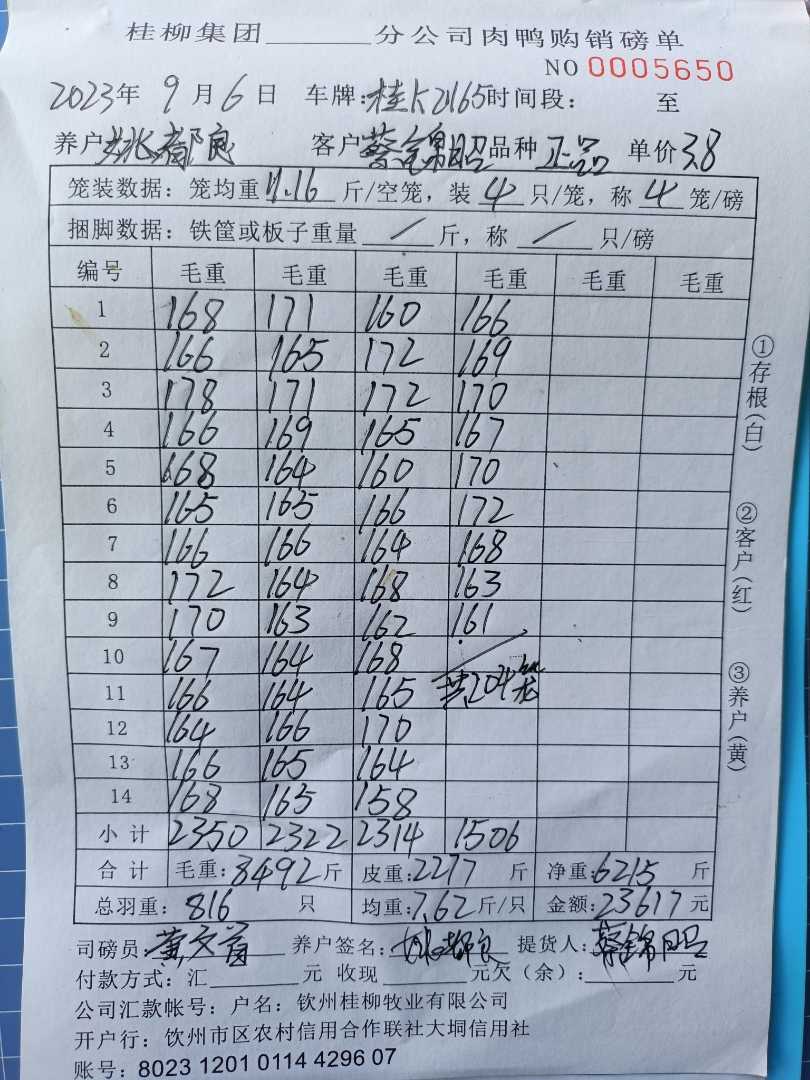 桂柳集团______分公司肉鸭购销磅单
NO 0005650
2023年 9月6日 车牌:桂K2165时间段: 至
养户姚都良 客户蔡锦昭品种 正品 单价3.8
笼装数据:笼均重11.16斤/空笼,装4只/笼,称4笼/磅
捆脚数据:铁筐或板子重量 / 斤,称 / 只/磅
编号 毛重 毛重 毛重 毛重 毛重 毛重
1 168 171 160 166
2 166 165 172 169
3 178 171 172 170
4 166 169 165 167
5 168 164 160 170
6 165 165 166 172
7 166 166 164 168
8 172 164 168 163
9 170 163 162 161
10 167 164 168
11 166 164 165 共204笼
12 164 166 170
13 166 165 164
14 168 165 158
小计 2350 2322 2314 1506
合计 毛重:8492斤 皮重:2277斤 净重:6215斤
总羽重:816只 均重:7.62斤/只 金额:23617元
司磅员: 养户签名:姚都良 提货人:蔡锦昭
付款方式:汇______元 收现______元欠(余):______元
公司汇款帐号:户名:钦州桂柳牧业有限公司
开户行:钦州市区农村信用合作联社大垌信用社
账号:8023 1201 0114 4296 07
①存根(白)
②客户(红)
③养户(黄)